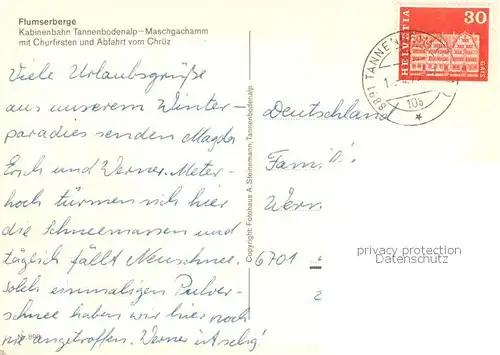 Flumserberge
Kabinenbahn Tannenbodenalp—Maschgachamm
mit Churfirsten und Abfahrt vom Chrüz
Viele Urlaubsgrüße
aus unserem Winter-
paradies senden Magda
Erich und Werner. Meter-
hoch türmen sich hier
die Schneemassen und
täglich fällt Neuschnee.
Solch einmaligen Pulver-
schnee haben wir hier noch
nie angetroffen. Werner ist selig!
Nr. 898
Copyright: Fotohaus A. Steinemann, Tannenbodenalp
HELVETIA
30
GAIS
8891 TANNEN
10b
Deutschland
Famil
Wern
6701
privacy protection
Datenschutz